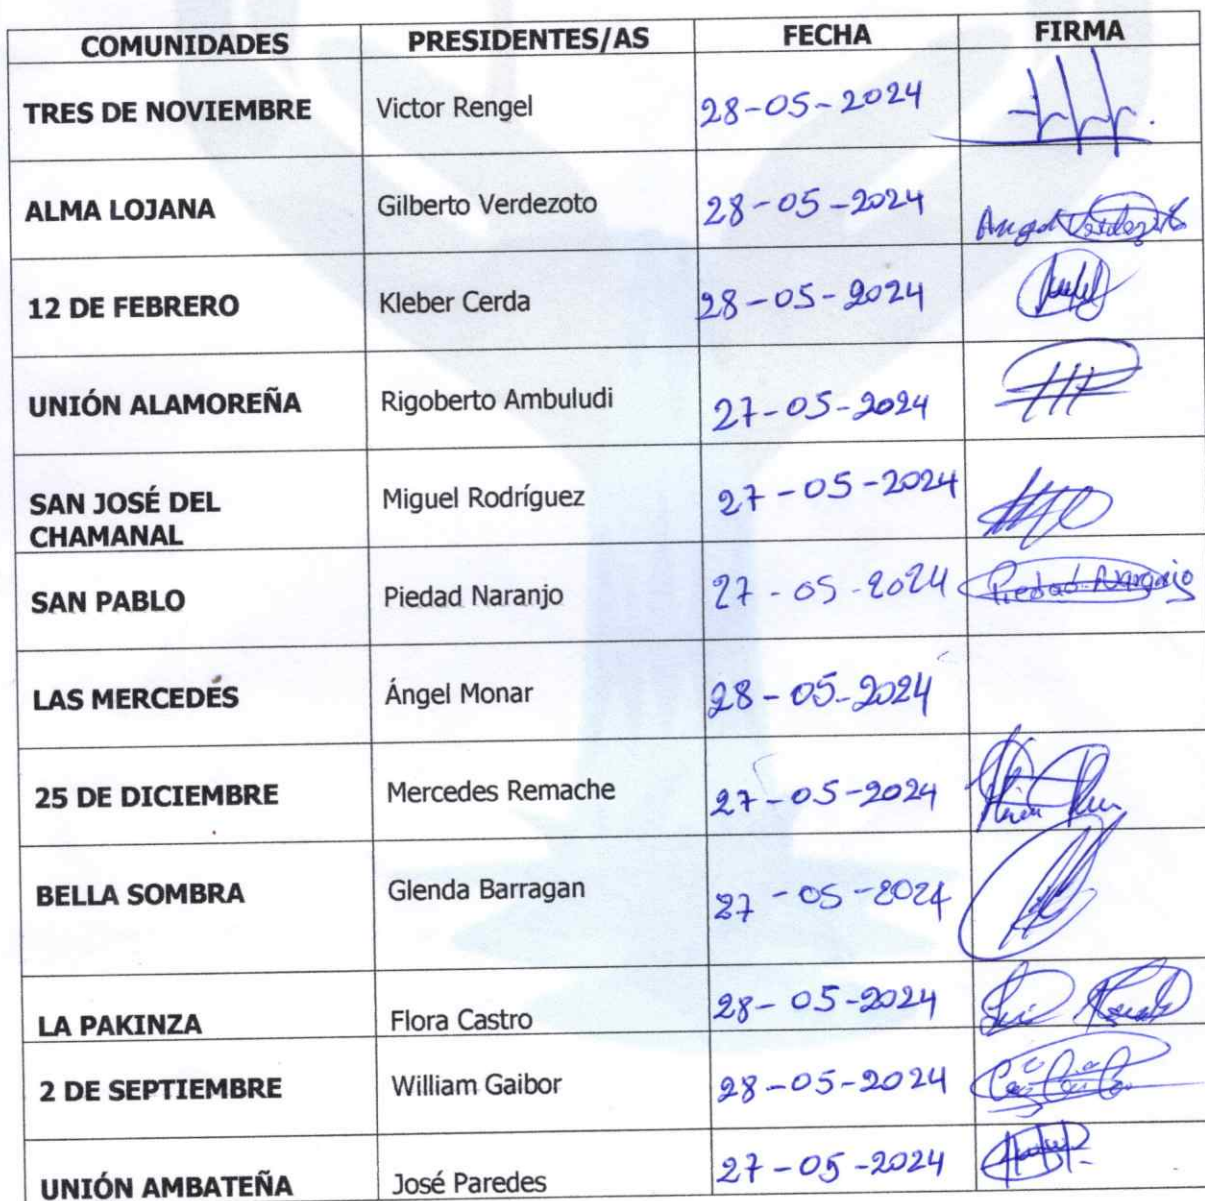 COMUNIDADES PRESIDENTES/AS FECHA FIRMA
TRES DE NOVIEMBRE Victor Rengel 28-05-2024
ALMA LOJANA Gilberto Verdezoto 28-05-2024
12 DE FEBRERO Kleber Cerda 28-05-2024
UNIÓN ALAMOREÑA Rigoberto Ambuludi 27-05-2024
SAN JOSÉ DEL Miguel Rodríguez 27-05-2024
CHAMANAL
SAN PABLO Piedad Naranjo 27-05-2024 Piedad Naranjo
LAS MERCEDES Ángel Monar 28-05-2024
25 DE DICIEMBRE Mercedes Remache 27-05-2024
BELLA SOMBRA Glenda Barragan 27-05-2024
LA PAKINZA Flora Castro 28-05-2024
2 DE SEPTIEMBRE William Gaibor 28-05-2024
UNIÓN AMBATEÑA José Paredes 27-05-2024